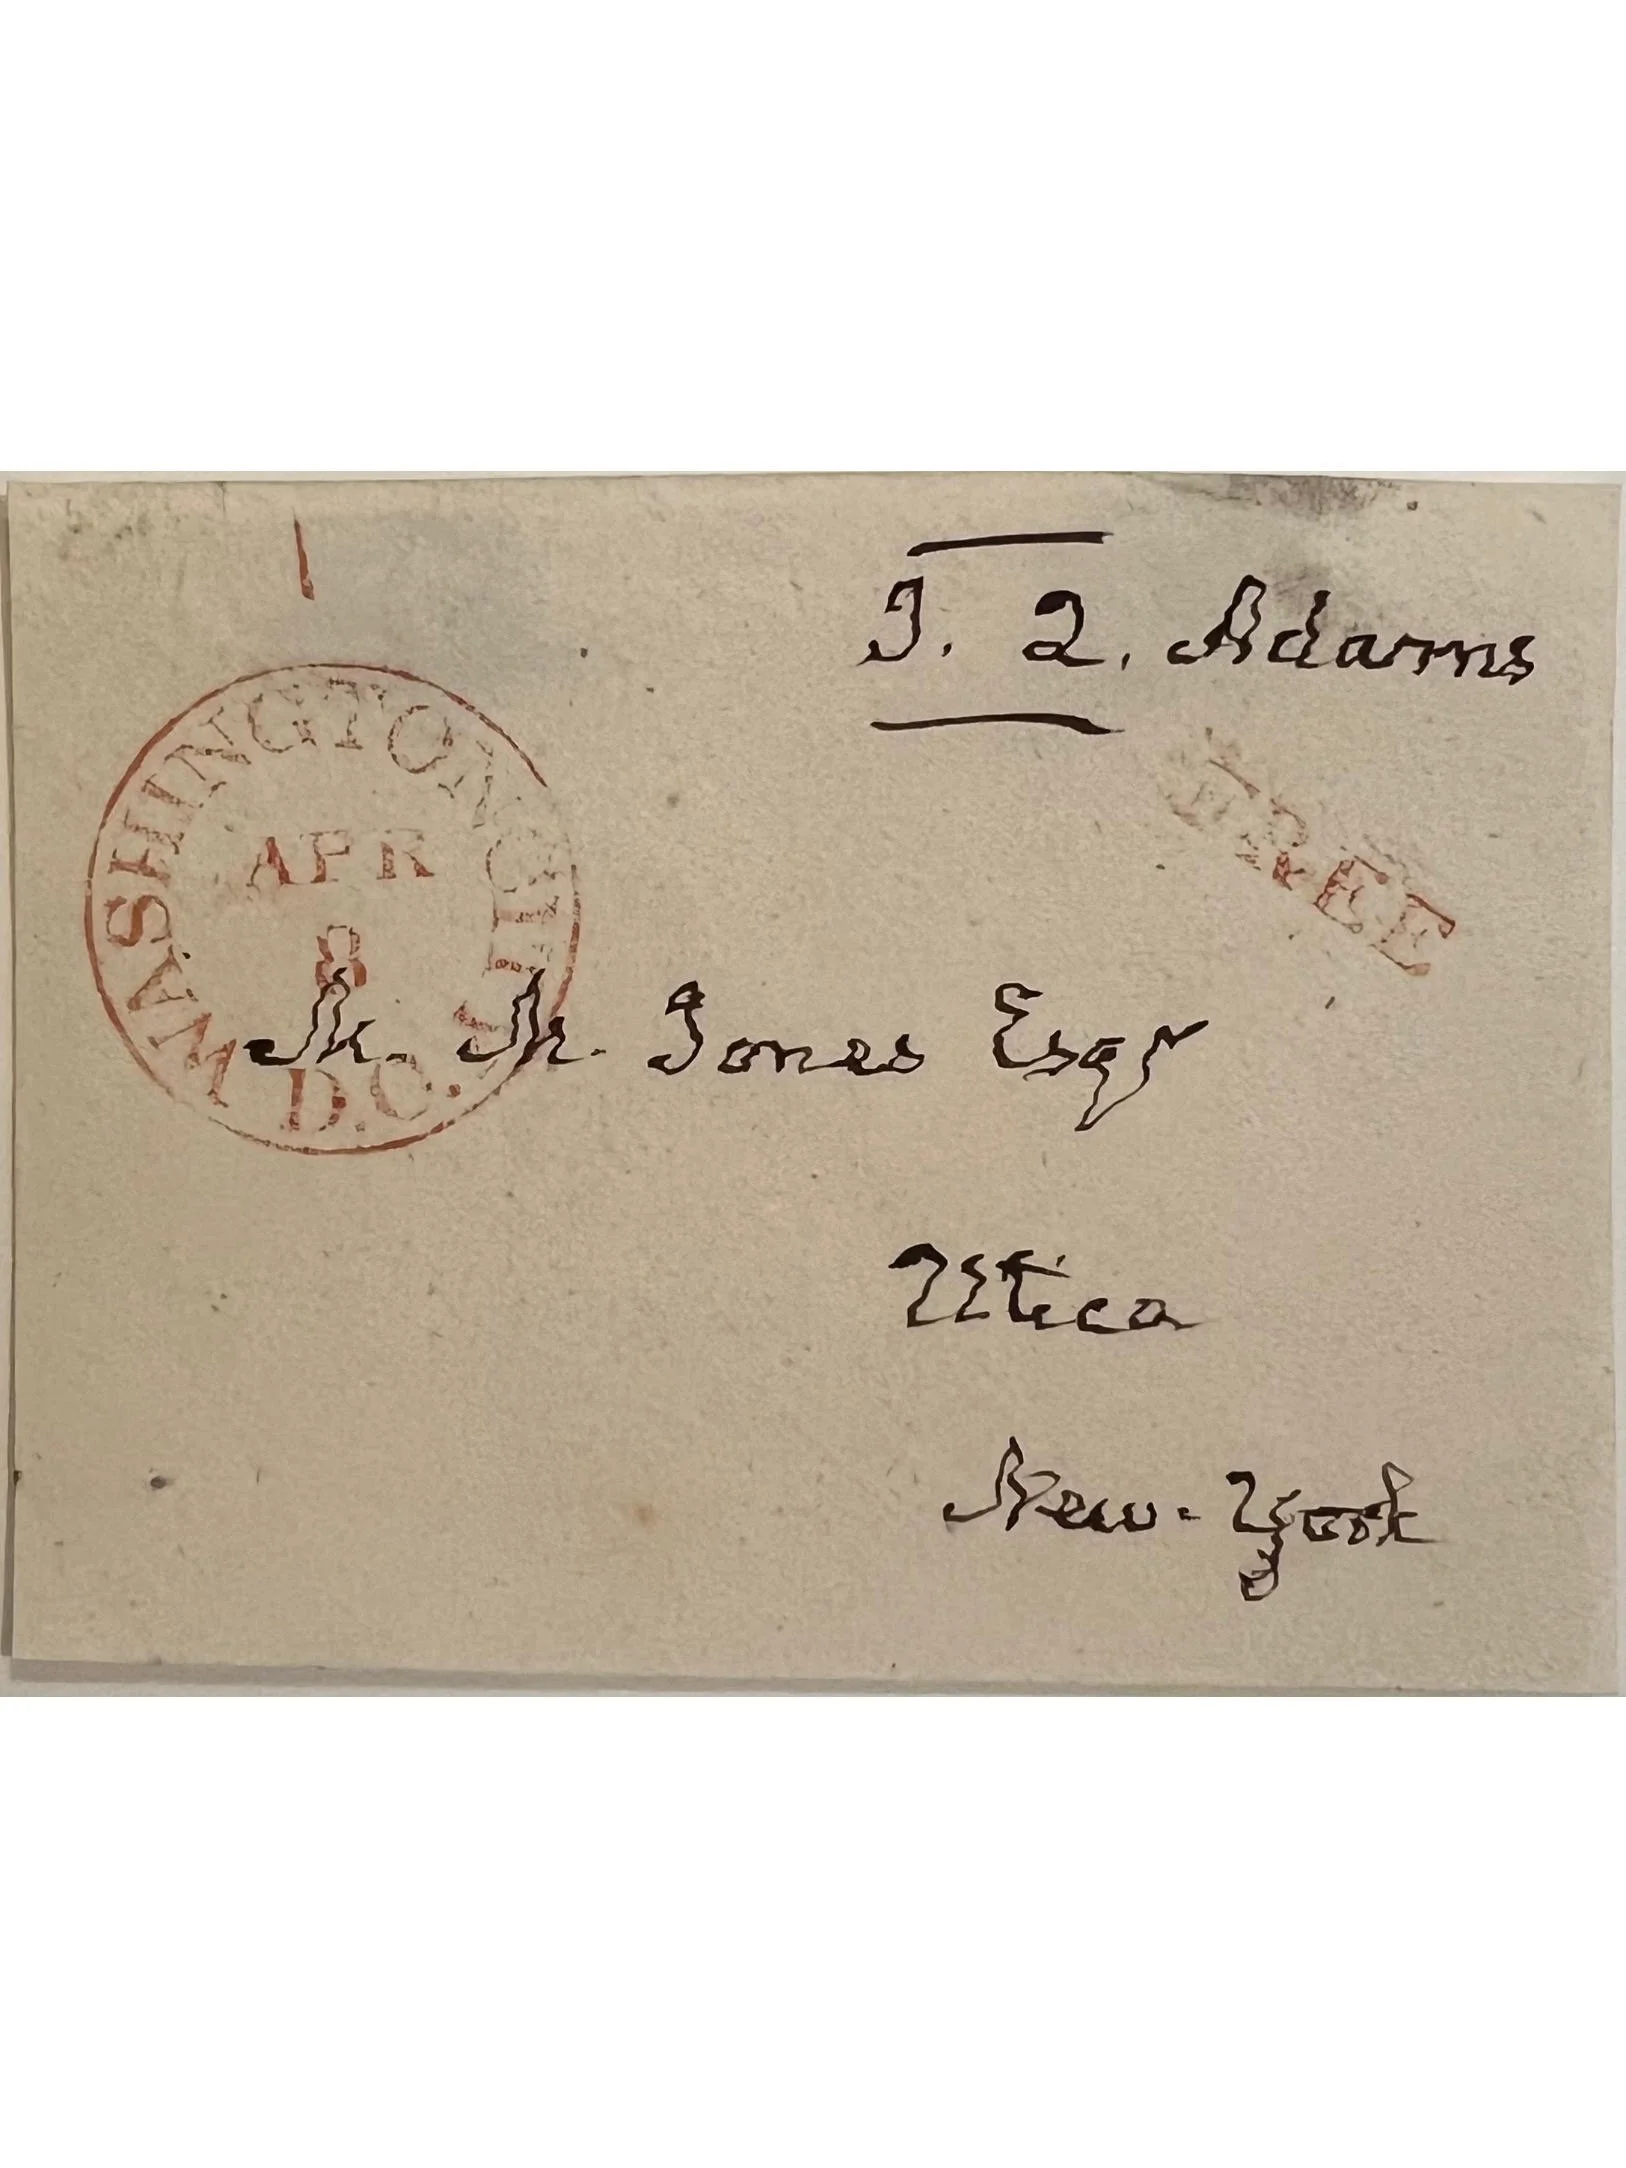 J. Q. Adams
FREE
WASHINGTON CITY
APR
8
D.C.
M. M. Jones Esqr
Utica
New-York